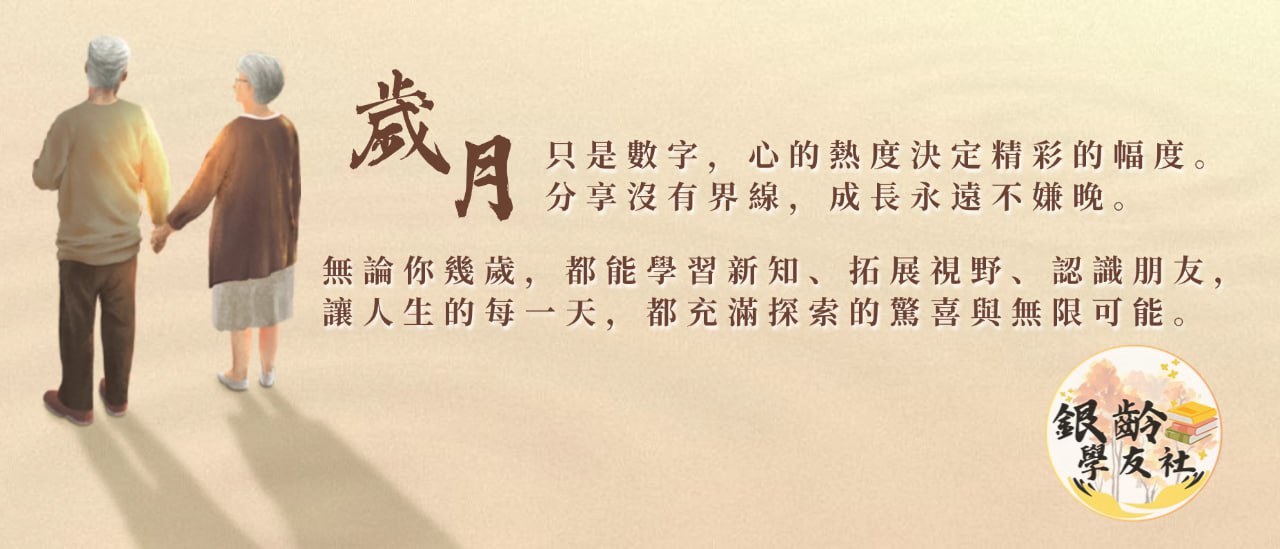 歲月
只是數字，心的熱度決定精彩的幅度。
分享沒有界線，成長永遠不嫌晚。
無論你幾歲，都能學習新知、拓展視野、認識朋友，
讓人生的每一天，都充滿探索的驚喜與無限可能。
銀齡
學友社